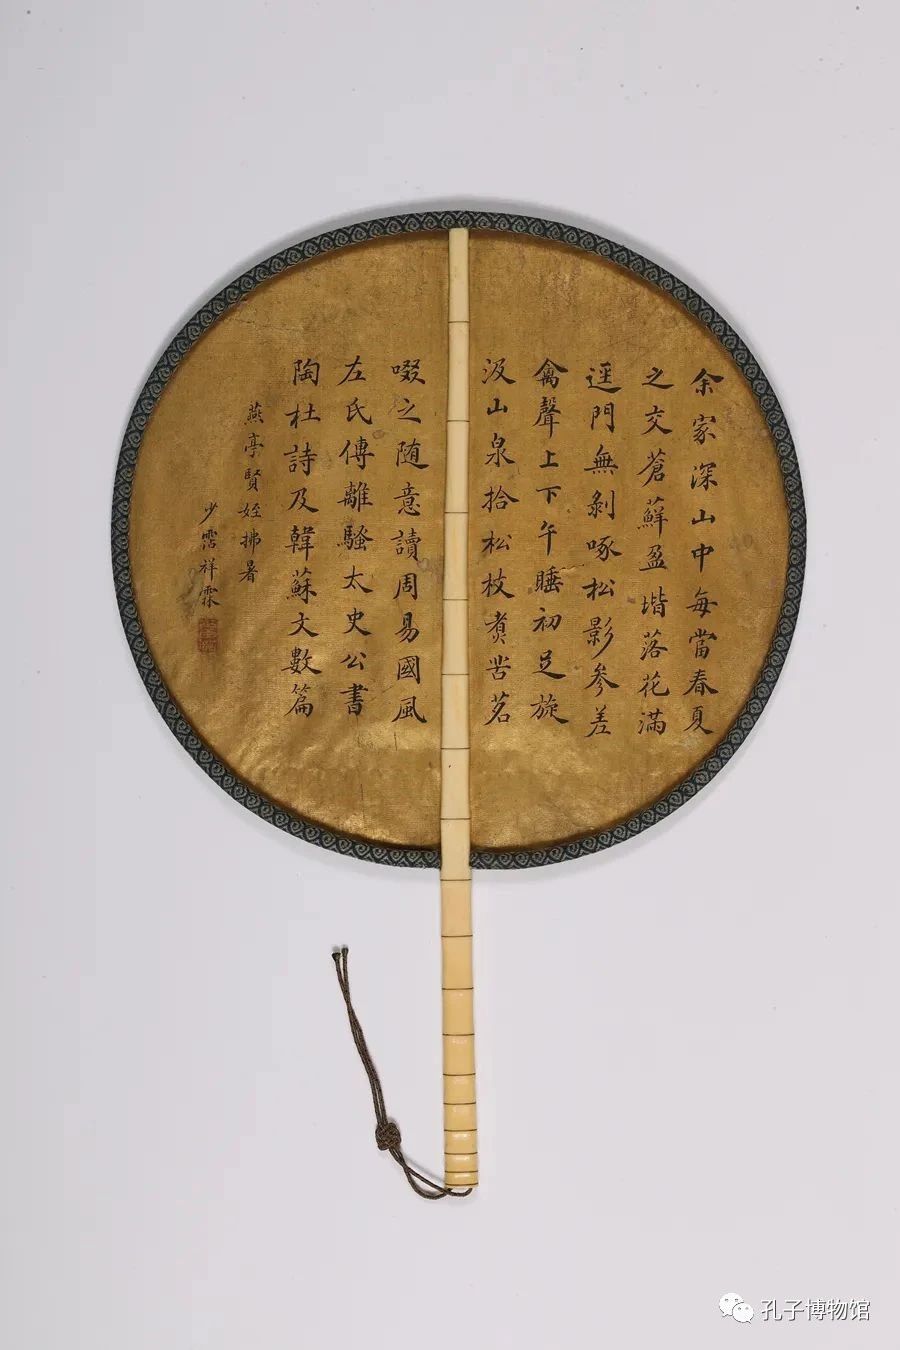 余家深山中每當春夏
之交蒼蘚盈堦落花滿
逕門無剝啄松影參差
禽聲上下午睡初足旋
汲山泉拾松枝煑苦茗
啜之随意讀周易國風
左氏傳離騷太史公書
陶杜詩及韓蘇文數篇
燕亭賢姪拂暑
少霑祥霖
孔子博物馆